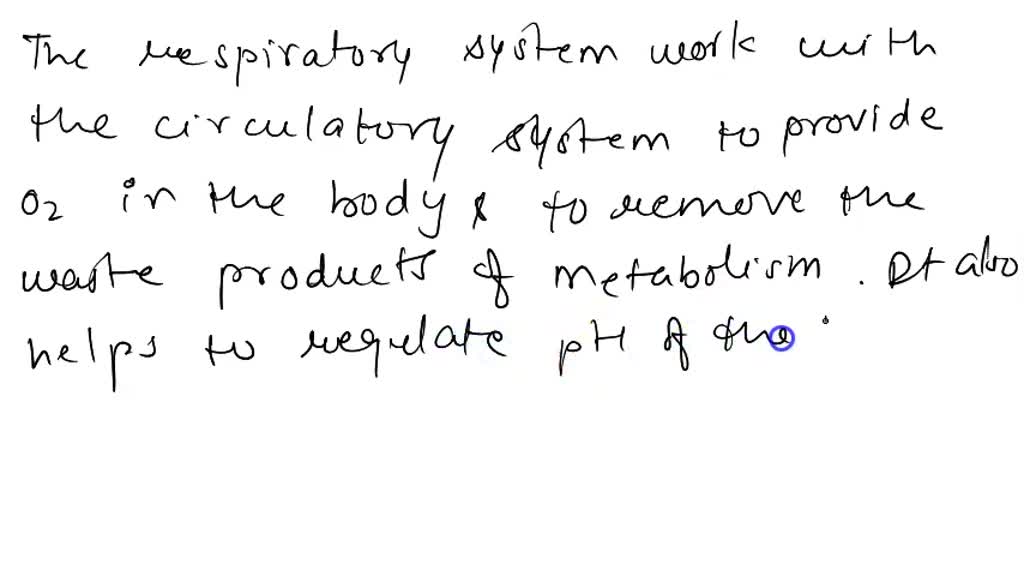 The respiratory system work with
the circulatory system to provide
O2 in the body & to remove the
waste products of metabolism. It also
helps to regulate pH of the